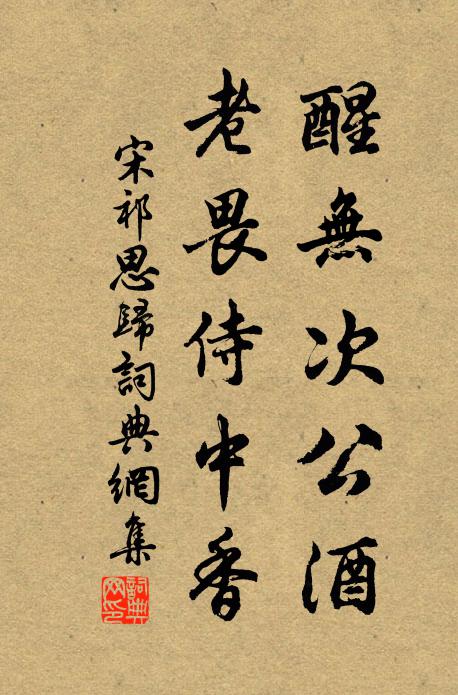 醒無次公酒
老畏侍中香
宋祁思歸詞典網集
詞典网印